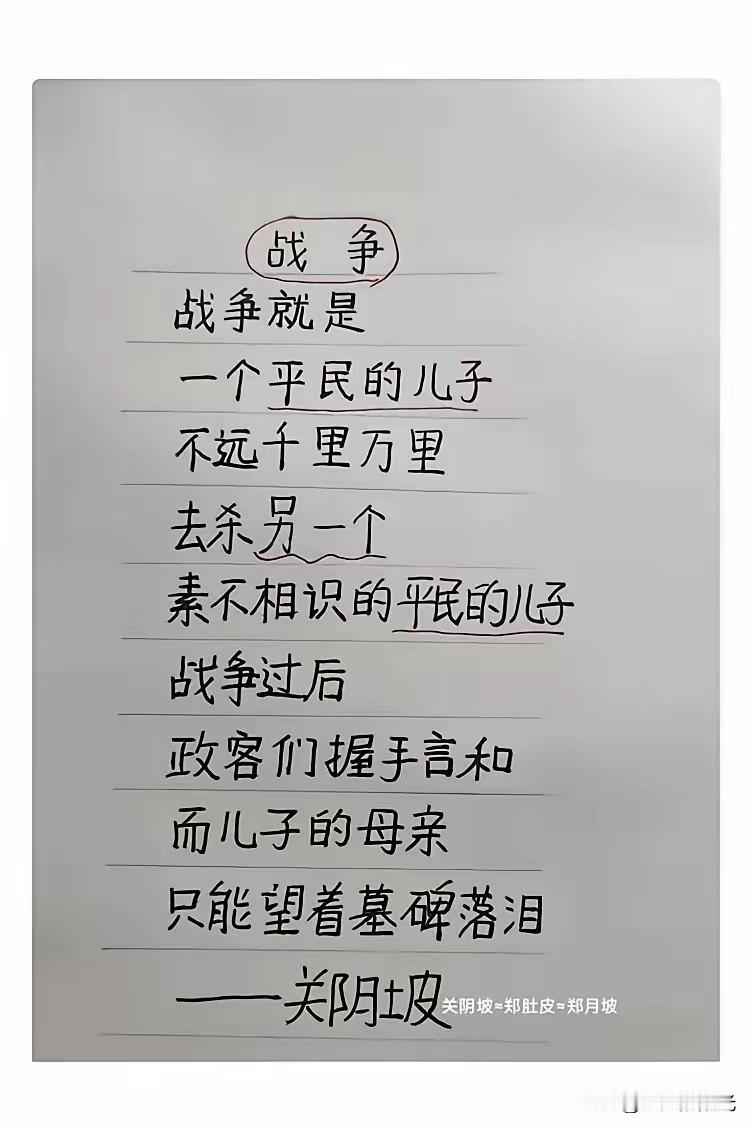 战 争
战争就是
一个平民的儿子
不远千里万里
去杀另一个
素不相识的平民的儿子
战争过后
政客们握手言和
而儿子的母亲
只能望着墓碑落泪
——关阴坡
关阴坡≈郑肚皮≈郑月坡